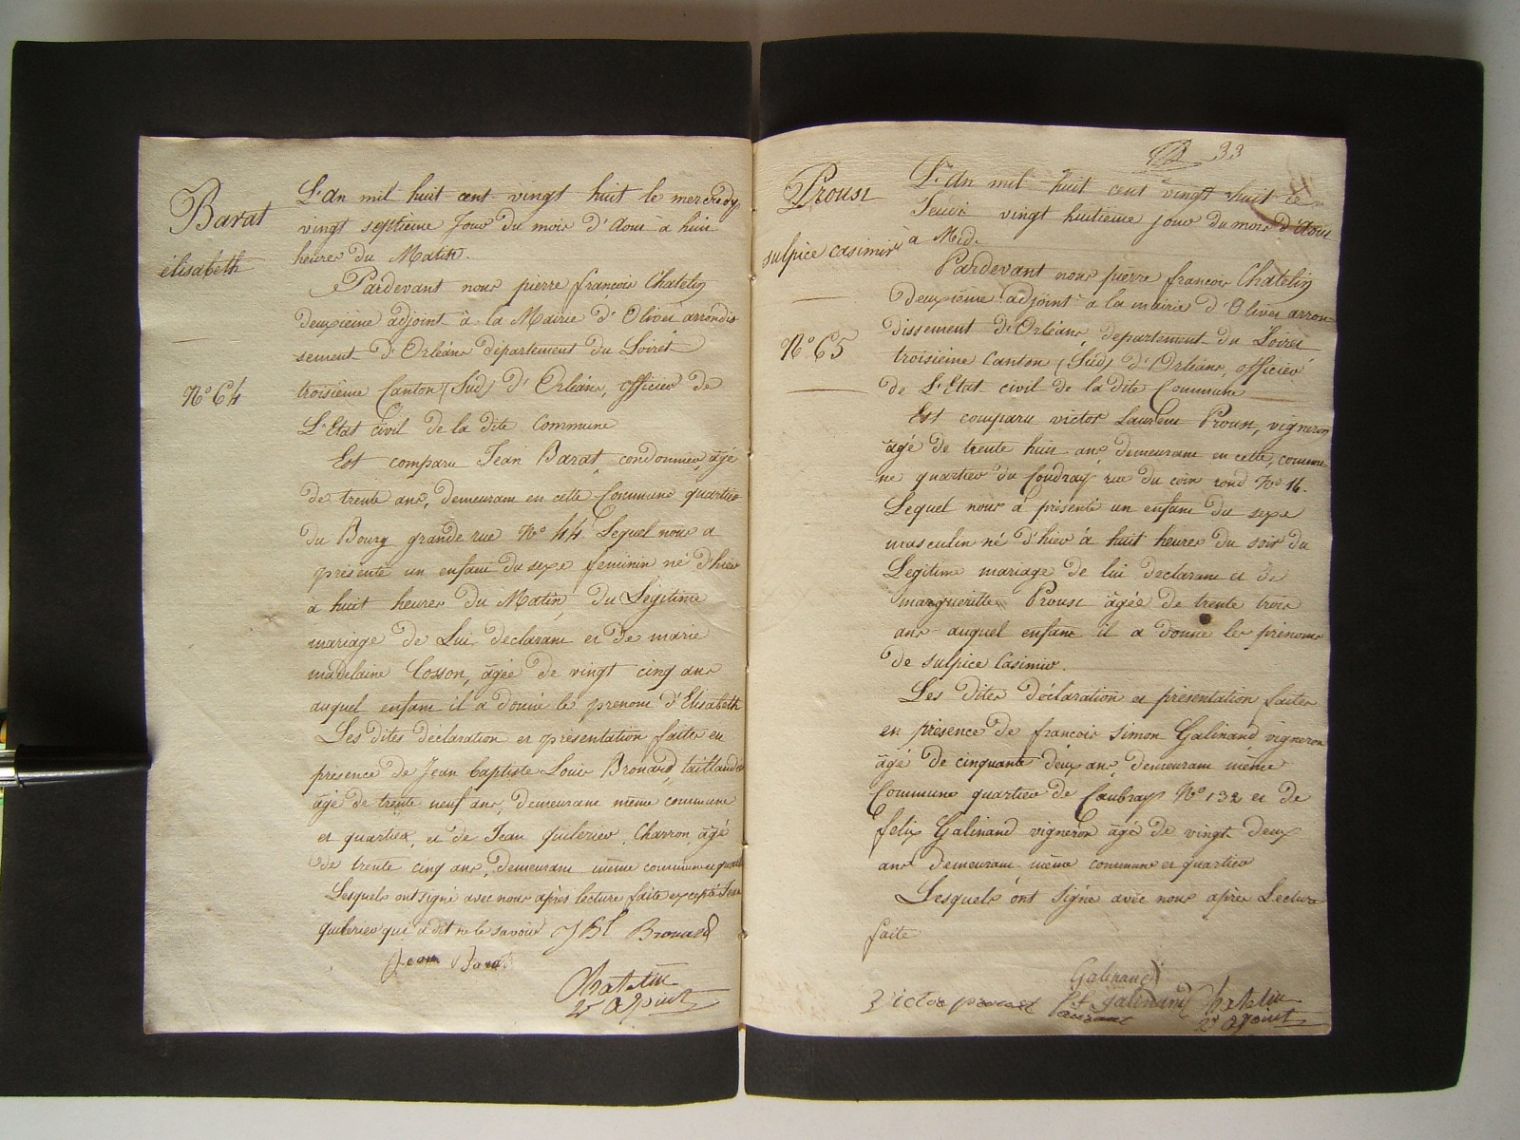 Barat
élisabeth
N.o 64
L'an mil huit cent vingt huit le mercredy
vingt septieme Jour du mois d'Aout à huit
heures du Matin.
Pardevant nous pierre françois Chatelin
deuxieme adjoint à la Mairie d'Olivet arrondis
sement d'Orléans département du Loiret
troisieme Canton (Sud) d'Orléans, officier de
L'Etat civil de la dite Commune
Est comparu Jean Barat cordonnier, agé
de trente ans, demeurant en cette Commune quartier
du Bourg grande rue N.o 44 Lequel nous a
présenté un enfant du sexe feminin né d'hier
a huit heures du Matin, du Légitime
mariage de Lui declarant et De marie
madelaine Cosson, agée de vingt cinq ans
auquel enfant il a donné le prenom d'Elisabeth
Les dites déclaration et présentation faites en
présence de Jean baptiste Louis Bronard, taillandier
agé de trente neuf ans, demeurant même commune
et quartier, et de Jean quilerier, Charron, agé
de trente cinq ans, demeurant même commune et quartier
Lesquels ont signé avec nous après lecture faite excepté Jean
quilerier qui a dit ne le savoir JBL Bronard
Jean Barat
Chatelin
2e adjoint
33
Proust
sulpice casimir
N.o 65
L'An mil huit cent vingt huit le
Jeudi vingt huitieme jour du mois d'Aout
à Midi
Pardevant nous pierre francois Chatelin
Deuxieme adjoint à la mairie d'Olivet arron
dissement d'Orléans, departement du Loiret
troisieme Canton (Sud) d'Orléans, officier
de L'Etat civil de la dite Commune
Est comparu victor Laurent Proust, vigneron
agé de trente huit ans demeurant en cette commu
ne quartier du Coudray rue du coin rond N.o 16.
Lequel nous a présenté un enfant du sexe
masculin né d'hier à huit heures du soir du
Legitime mariage de lui declarant et de
margueritte Proust agée de trente trois
ans auquel enfant il a donné les prénoms
de sulpice Casimir.
Les dites déclaration et présentation faites
en présence de francois Simon Galinand vigneron
agé de cinquante deux ans, demeurant même
Commune quartier de Caubray N.o 132 et de
felix Galinand vigneron agé de vingt deux
ans demeurant même commune et quartier
Lesquels ont signé avec nous après Lecture
faite
Galinand
Victor proust f.s galinand Chatelin
2e adjoint